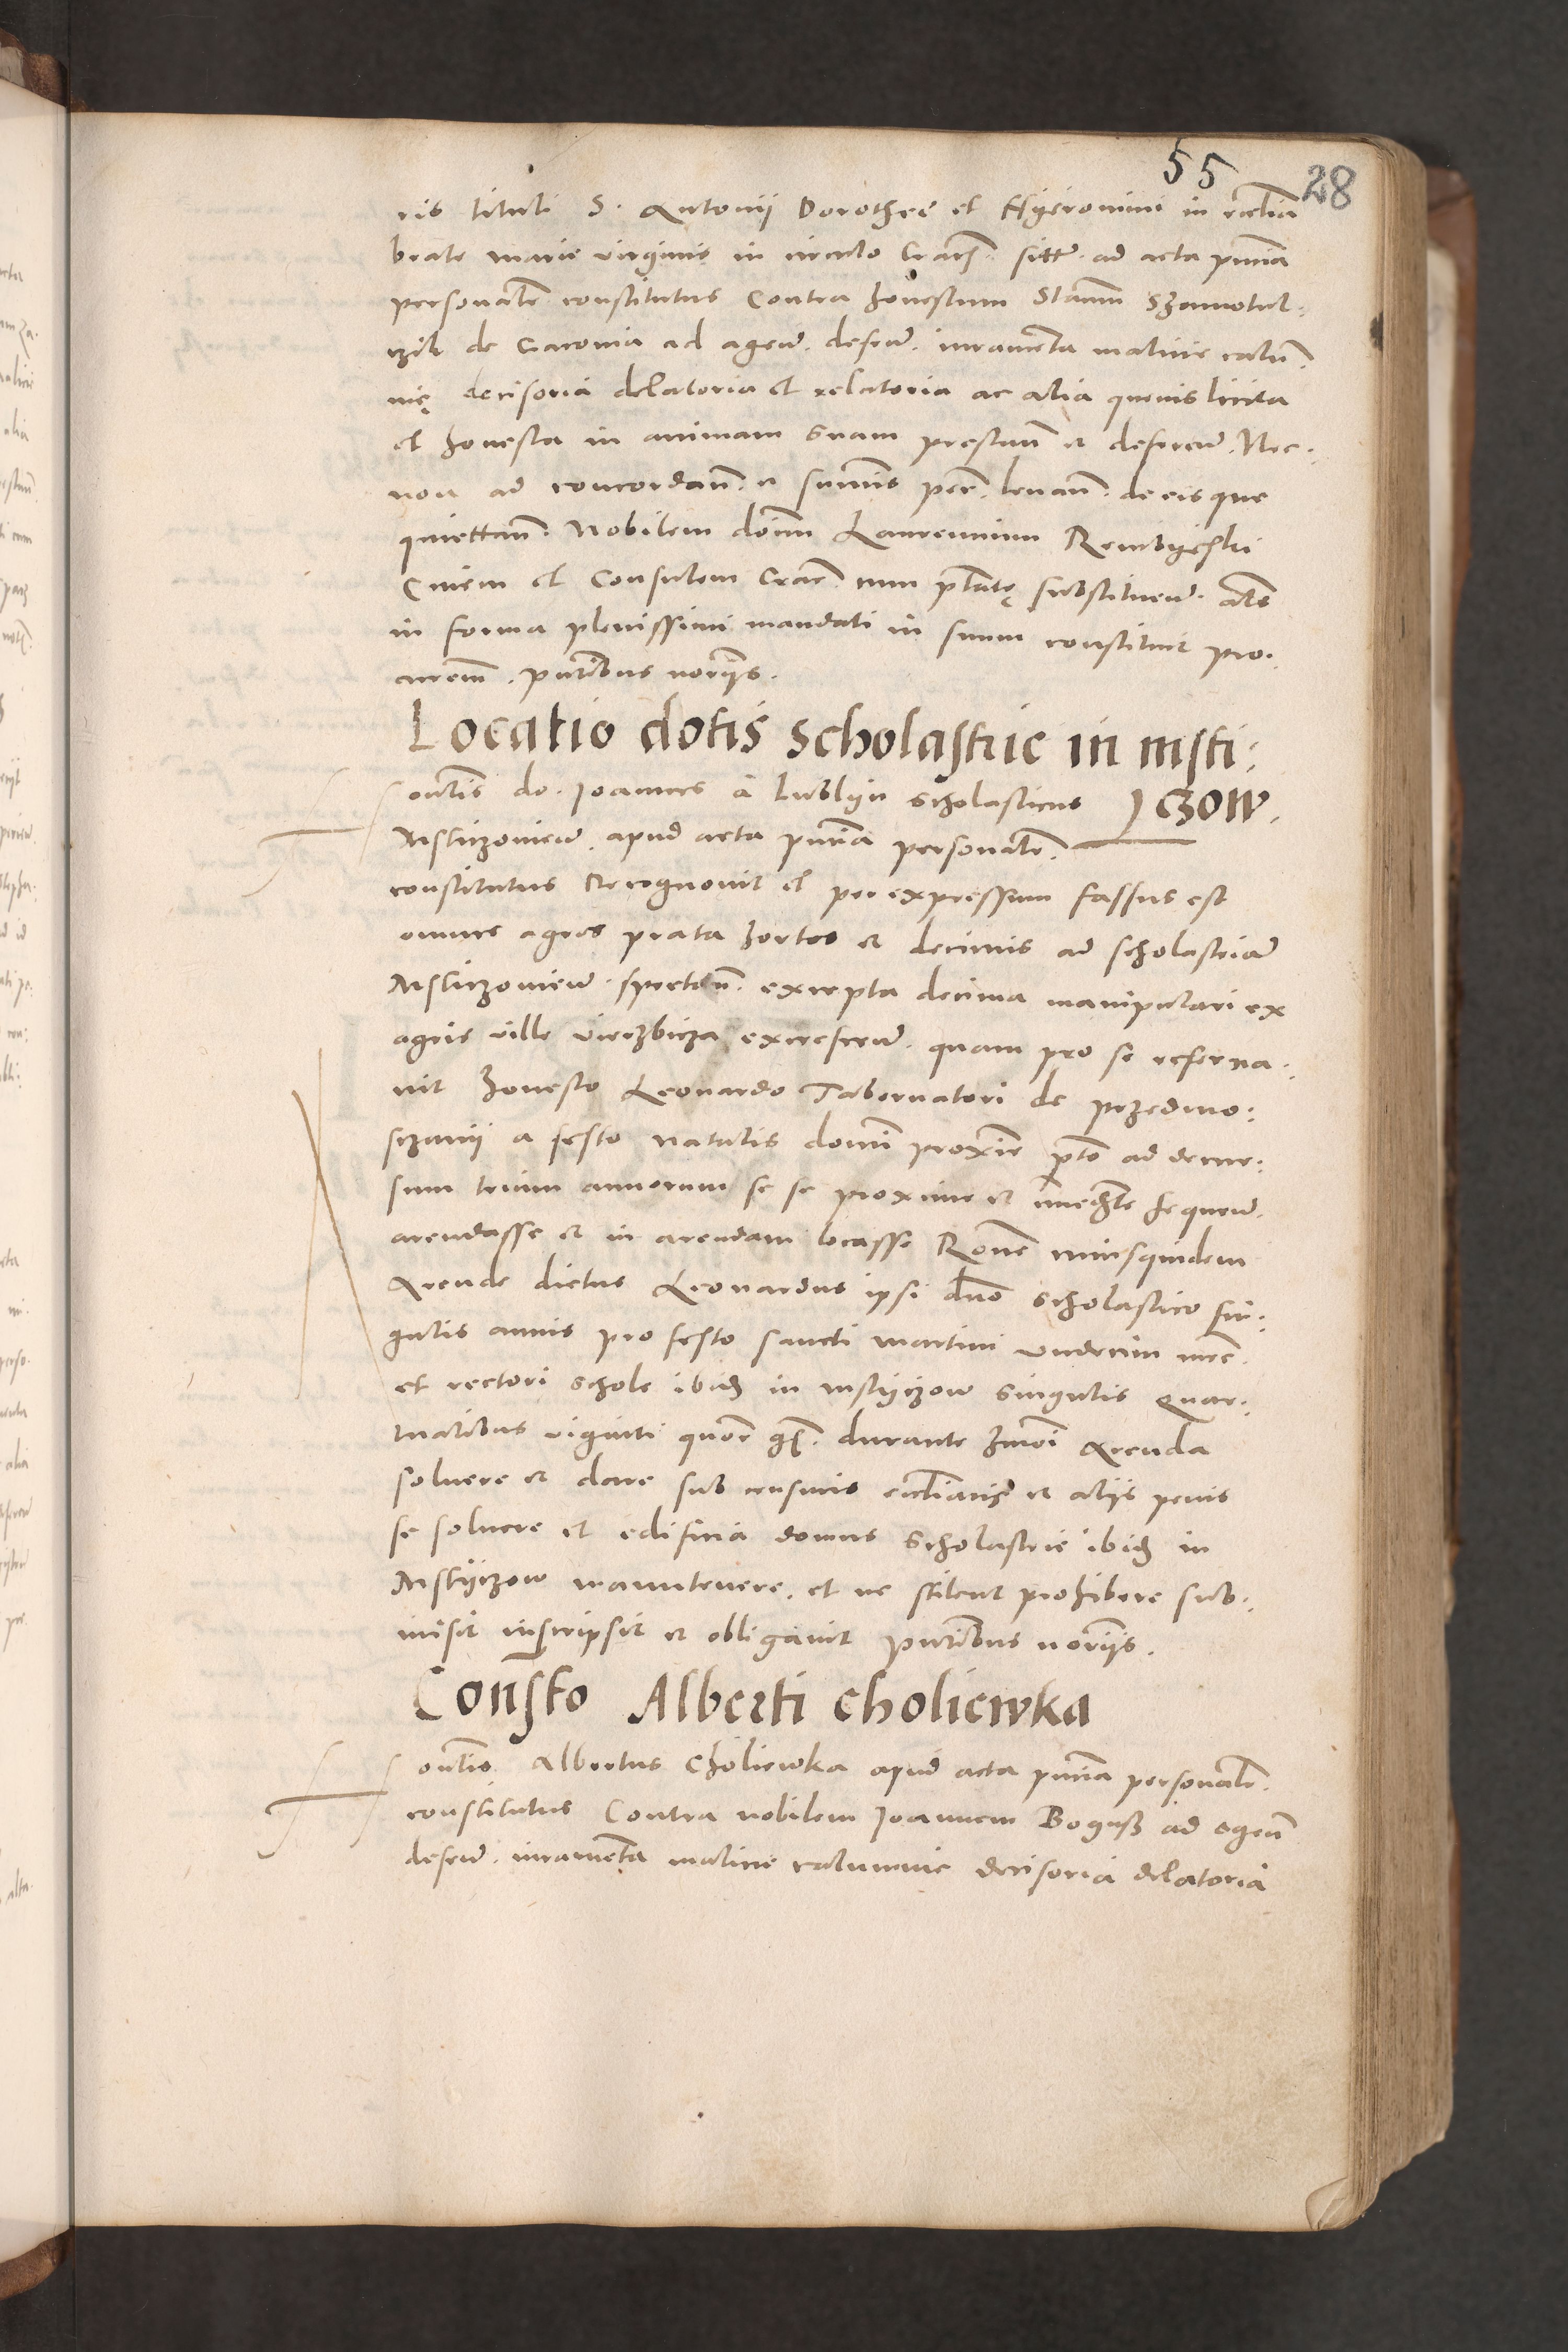 55 28
ris tituli S. Antonii Dorothee et Hyeronimi in eccl̄ia
beate marie virginis in circulo Crac̄. sitt̄. ad acta pn̄cia
personalit̄ constitutus Contra honestum Stan̄m Szamotul:
czik de Cracovia ad agen̄. defen̄. iuramenta malicie calūm:
nię decisoria delatoria et relatoria ac alia quevis licita
et honesta in animam suam prestan̄ et deferen̄. Nec:
non ad concordan̄. et summas pec̄. levan̄. de eisque
quiettan̄. Nobilem dominū Laurencium Rembyeski
Civem et Consulem Crac̄. cum ptāte substituen̄. alr̄s
in forma plenissimi mandati in suum constituit pro:
curem̄. pn̄tibus nor̄ijs.
Locatio dotis scholastrie in msti:
czow.
onr̄lis do. Joannes a Lublyn scholasticus
Msticzovien̄. apud acta pn̄cia personalr̄.
constitutus Recognovit et per expressum fassus est
omnes agros prata hortos et decimis ad scholastriam
Msticzovien̄. spectan̄. excepta decima manipulari ex
agris ville vierzbicza excrescen̄. quam pro se reserva:
vit honesto Leonardo Tabernatori de przedmo:
sczanij a festo natalis domini proxime ptō ad decur:
sum trium annorum se se proxime et immediate sequen̄.
arendasse et in arendam locasse Ronē cuiusquidem
Arende dictus Leonardus ipsi dn̄o scholastico sin:
gulis annis pro festo sancti martini undecim mrc̄.
et rectori schole ibid̄ in mstijczow singulis quar:
tualibus viginti quor̄ gr̄. durante hmōi Arenda
solvere et dare sub censuris eccl̄iasticis et alijs penis
se solvere et edificia domus scholastrie ibid̄ in
Mstijczow manutenere. et ne distillent prohibere sub:
misit inscripsit et obligavit pn̄tibus nor̄ijs.
Consto Alberti choliewka
onr̄lis Albertus Choliewka apud acta pn̄cia personalr̄.
constitutus Contra nobilem Joannem Bogusz ad agen̄
defen̄. iuramenta malicie calumnie decisoria delatoria